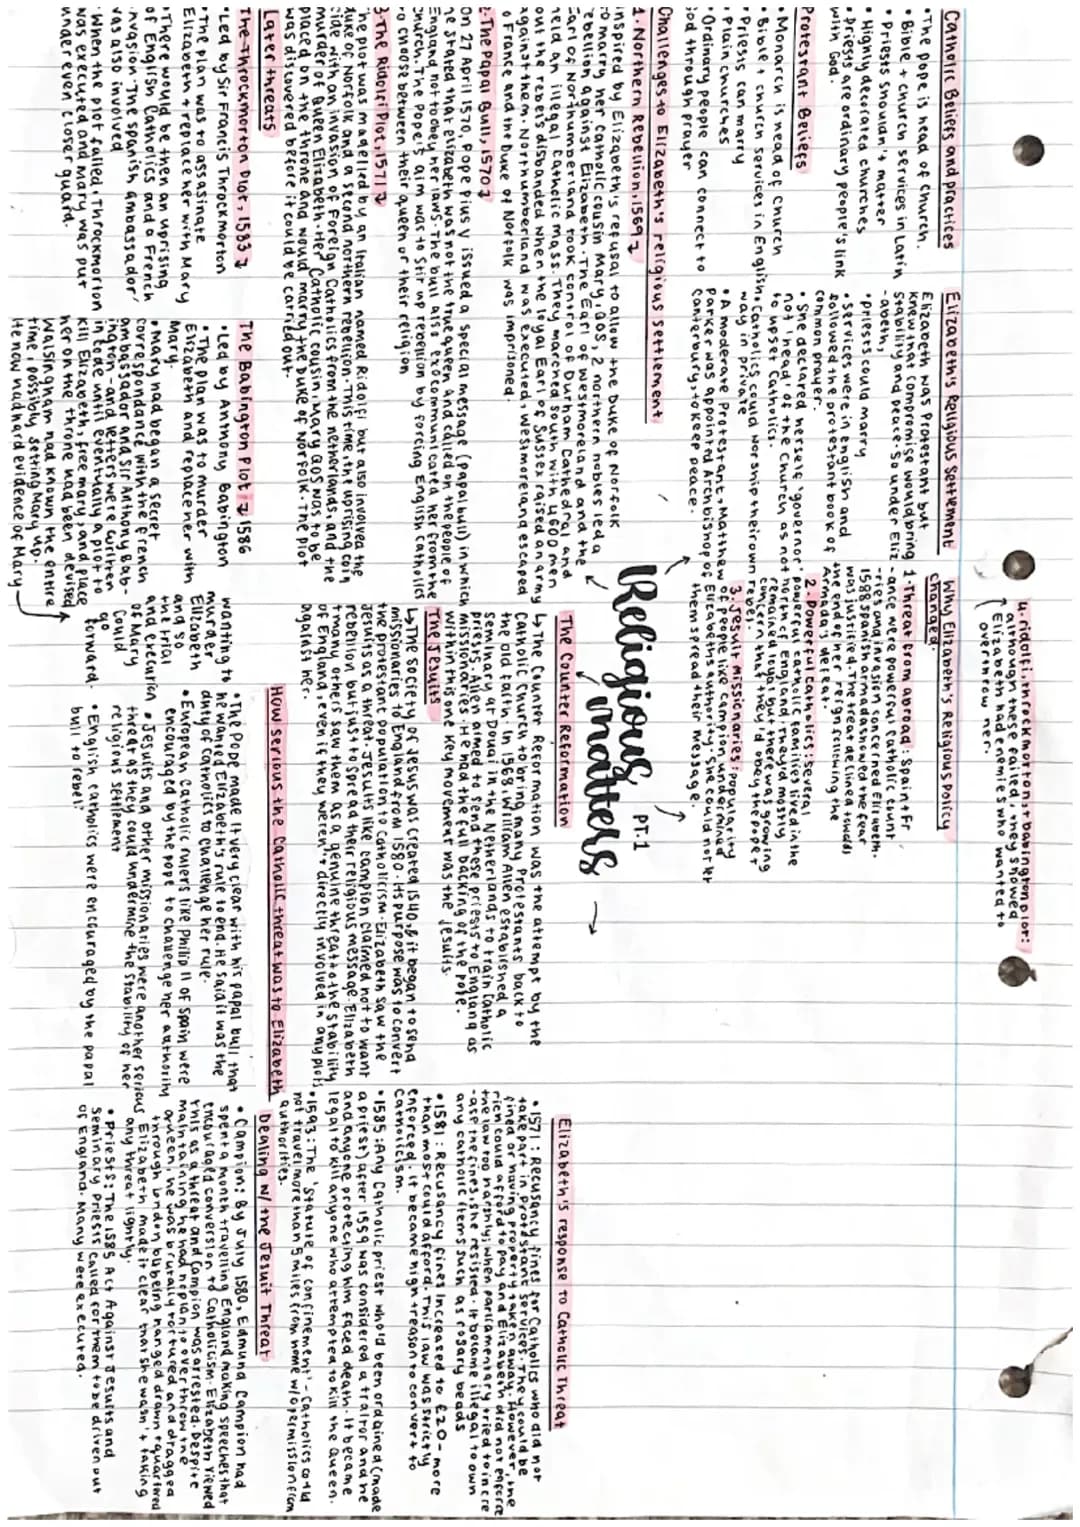 Catholic Beliefs and practices
• The pope is head of church.
• Bible + church services in Latin
• Priests shouldn't marry
• Highly decorated churches
• Priests are ordinary people's link
with God.
Protestant Beliefs
• Monarch is head of church
• Bible + church services in English
• Priests can marry
• Plain churches
• Ordinary people can connect to
God through prayer
Elizabeth's Religious Settlement
Elizabeth was Protestant but
knew that compromise would bring
stability and peace. So under Eliz
-abeth;
• priests could marry
• services were in english and
followed the protestant book of
common prayer.
• She declared herself 'governor'
not 'head' of the Church as not
to upset Catholics.
• Catholics could worship their own
way in private
• A moderate Protestant, Matthew
Parker was appointed Archbishop of
Canterbury, to keep peace.
Why Elizabeth's Religious Policy
changed.
1. Threat from abroad: Spain + Fr
-ance were powerful Catholic count
-ries and invasion concerned Elizabeth.
1588 spanish armada showed the fear
was justified. The treat declined towards
the end of her reign following the
Armada's defeat.
2. Powerful catholics: Several
powerful catholic families lived in the
north of England. They'd mostly
remained loyal but there was growing
concern that they'd obey the pope +
rebel.
3. Jesuit missionaries: popularity
of people like Campion undermined
Elizabeths authority. She could not let
them spread their message.
4. ridolfi, throckmorton, + babington plot:
although these failed, they showed
Elizabeth had enemies who wanted to
overthrow her.
Religious
matters
PT.1
Challenges to Elizabeth's religious settlement
1. Northern Rebellion, 1569
inspired by Elizabeth's refusal to allow the Duke of Norfolk
to marry her catholic cousin Mary, QOS, 2 northern nobles led a
rebellion against Elizabeth. The Earl of Westmoreland and the
Earl of Northumberland took control of Durham Cathedral and
held an illegal Catholic mass. They marched south with 4600 men
but the rebels disbanded when the loyal Earl of Sussex raised an army
against them. Northumberland was executed, Westmoreland escaped
to France and the Duke of Norfolk was imprisoned.
2. The Papal Bull, 1570
On 27 April 1570, Pope Pius V issued a special message (papal bull) in which
he stated that elizabeth was not the true queen and called on the people of
England not to obey her laws. The bull also excommunicated her from the
church. The Pope's aim was to stir up rebellion by forcing English catholics
to choose between their queen or their religion
3. The Ridolfi Plot, 1571
The plot was modelled by an Italian named Ridolfi but also involved the
Duke of Norfolk and a second northern rebellion. This time, the uprising coin
cide with an invasion of Foreign Catholics from the netherlands, and the
murder of Queen Elizabeth. Her Catholic cousin, Mary QOS was to be
placed on the throne and would marry the Duke of Norfolk. The plot
was discovered before it could be carried out.
Later threats
The Throckmorton Plot, 1583
• Led by Sir Francis Throckmorton
• The plan was to assasinate
Elizabeth + replace her with Mary
• There would be then an uprising
of English Catholics and a French
invasion. The spanish ambassador
was also involved
• When the plot failed, Throckmorton
was executed and Mary was put
under even closer guard.
The Babington Plot, 1586
• Led by Anthony Babington
• The plan was to murder
Elizabeth and replace her with
Mary.
• Mary had began a secret
correspondance with the french
ambassador and Sir Anthony Bab-
ington - and letters were writen
in code until eventually a plot to
kill Elizabeth, free mary, and place
her on the throne had been devised
Walsingham had known the entire
time, possibly setting Mary up.
He now had hard evidence of Mary
wanting to
murder
Elizabeth
and so
the trial
and execution
of Mary
could
go
forward.
The Counter Reformation
↳ The Counter Reformation was the attempt by the
Catholic Church to bring many Protestants back to
the old faith. In 1568, William Allen established a
seminary at Douai in the Netherlands to train Catholic
priests. Allen aimed to send these priests to England as
missionaries. He had the full backing of the Pope.
within this one key movement was the Jesuits.
The Jesuits
↳ The Society of Jesus was created 1540, & it began to send
missionaries to England from 1580. Its purpose was to convert
the protestant population to catholicism. Elizabeth saw the
Jesuits as a threat. Jesuits like Campion claimed not to want
rebellion but just to spread their religious message. Elizabeth
+ many others saw them as a genuine threat to the stability
of England, even if they weren't directly involved in any plots
against her.
How serious the catholic threat was to Elizabeth
• The Pope made it very clear with his papal bull that
he wanted Elizabeth's rule to end. He said it was the
duty of catholics to challenge her rule.
• European Catholic rulers like Philip II of Spain were
encouraged by the pope to challenge her authority
• Jesuits and other missionaries were another serious
threat as they could undermine the stability of her
religious settlement
• English catholics were encouraged by the papal
bull to rebel.
Elizabeth's response to Catholic Threat
• 1571: Recusancy fines for Catholics who did not
take part in Protestant services. They could be
fined or having property taken away. However, the
rich could afford to pay and Elizabeth did not enforce
the law too harshly; when parliamentary tried to incre
-ase the fines, she resisted. It became illegal to own
any catholic items such as rosary beads
• 1581: Recusancy fines increased to £20 - more
than most could afford. This law was strictly
enforced. it became high treason to convert to
Catholicism.
• 1585: Any Catholic priest who'd been ordained (made
a priest) after 1559 was considered a traitor and he
and anyone protecting him faced death. It became
legal to kill anyone who attempted to kill the Queen.
• 1593: The 'Statute of Confinement' - Catholics could
not travel more than 5 miles from home w/o permission from
authorities.
Dealing w/ the Jesuit Threat
• Campion: By July 1580, Edmund Campion had
spent a month travelling England making speeches that
encouraged conversion to Catholicism. Elizabeth viewed
this as a threat and Campion was arrested. Despite
maintaining he had no plan to over throw the
queen, he was brutally tortured and dragged
through London b4 being hanged drawn + quartered
Elizabeth made it clear that she wasn't taking
any threat lightly.
• Priests: The 1585 Act Against Jesuits and
Seminary Priests called for them to be driven out
of England. Many were executed.